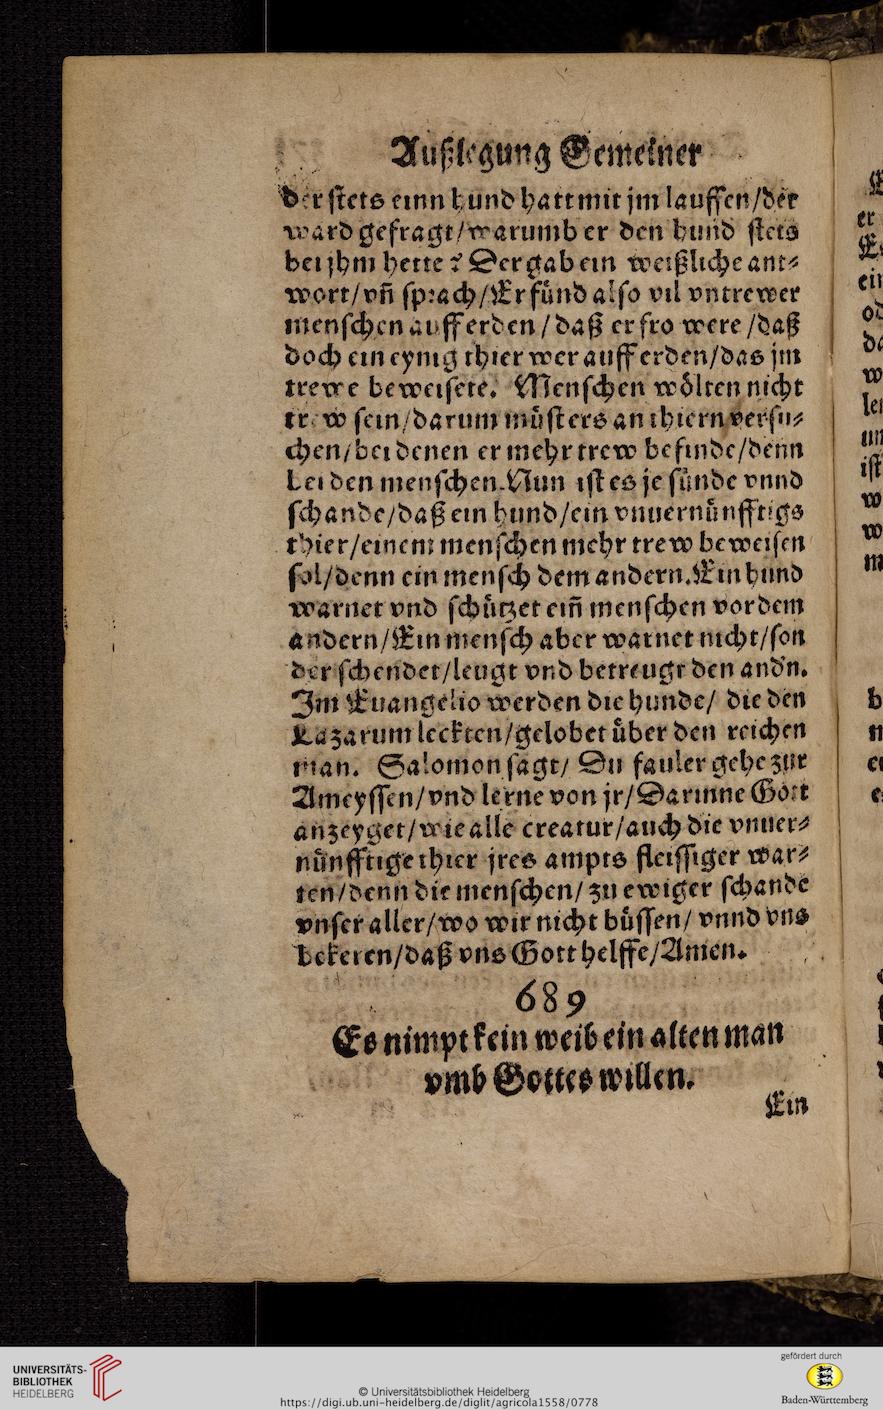 Außlegung Gemeiner
der stets einn hund hatt mit jm lauffen/der
ward gefragt/warumb er den hund stets
bei jhm hette? Der gab ein weißliche ant⸗
wort/vñ sprach/Er fünd also vil vntrewer
menschen auff erden/daß er fro were/daß
doch ein eynig thier wer auff erden/das jm
trewe beweisete. Menschen wôlten nicht
trew sein/darum mûst ers an thiern versu⸗
chen/bei denen er mehr trew befinde/denn
bei den menschen. Nun ist es je sünde vnnd
schande/daß ein hund/ein vnuernünfftigs
thier/einem menschen mehr trew beweisen
sol/denn ein mensch dem andern. Ein hund
warnet vnd schützet eiñ menschen vor dem
andern/Ein mensch aber warnet nicht/son
der schendet/leugt vnd betreugt den and'n.
Im Euangelio werden die hunde/ die den
Lazarum leckten/gelobet über den reichen
man. Salomon sagt/ Du fauler gehe zur
Ameyssen/vnd lerne von jr/Darinne Gott
anzeyget/wie alle creatur/auch die vnuer⸗
nünfftige thier jres ampts fleissiger war⸗
ten/denn die menschen/ zu ewiger schande
vnser aller/wo wir nicht büssen/ vnnd vns
bekeren/daß vns Gott helffe/Amen.
689
Es nimpt kein weib ein alten man
vmb Gottes willen.
Ein
UNIVERSITÄTS-
BIBLIOTHEK
HEIDELBERG
© Universitätsbibliothek Heidelberg
https://digi.ub.uni-heidelberg.de/diglit/agricola1558/0778
gefördert durch
Baden-Württemberg